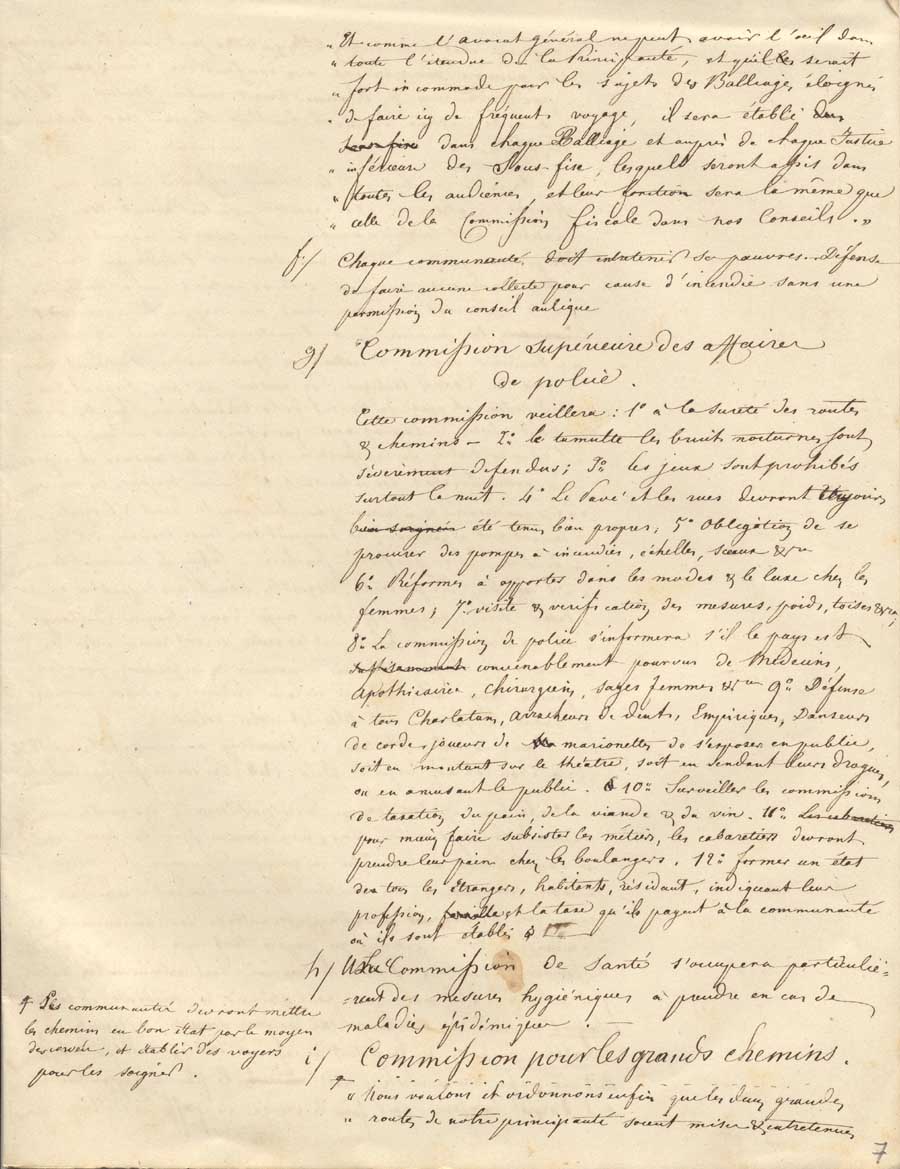 " Et comme l'avocat général ne peut avoir l'oeil dans
" toute l'étendue de la Principauté, et qu'il serait
" fort incommode pour les sujets des Balliages éloignés
" de faire icy de fréquents voyage, il sera établi
dans chaque Balliage et auprès de chaque Justice
" inférieure des Sous-fisc, lesquels seront assis dans
" toutes les audiences, et leur fonction sera la même que
" celle de la Commission fiscale dans nos Conseils. "
f/ Chaque communauté doit entretenir ses pauvres. Défense
de faire aucune collecte pour cause d'incendie sans une
permission du conseil aulique
g/ Commission supérieure des affaires
de police.
Cette commission veillera : 1° à la sureté des routes
& chemins – 2° le tumulte les bruits nocturnes sont
sévèrement defendus ; 3° les jeux sont prohibés
surtout la nuit. 4° Le Pavé et les rues devront
bien soignés été tenus bien propres ; 5° Obligation de se
procurer des pompes à incendies, échelles, sceaux &ra
6° Réformes à apporter dans les modes & le luxe chez les
femmes ; 7° visite & verification des mesures, poids, toises &ra ;
8° La commission de police s'informera s'il le pays est
suffisamment convenablement pourvus de Médecins,
Apothicaires, Chirurgiens, sages femmes &ra 9° Défense
à tous Charlatans, arracheurs de dents, Empiriques, Danseurs
de corde, joueurs de marionettes de s'exposer en public,
soit en montant sur le théatre, soit en vendant leurs drogues,
ou en amusant le public. 10° Surveiller les commissions
de taxation du pain, de la viande & du vin. 11° Les cabaretiers
pour mieux faire subsister les métiers, les cabaretiers devront
prendre leur pain chez les boulangers. 12° former un état
de tous les étrangers, habitants, résidant, indiquant leur
profession, famille et la taxe qu'ils payent à la communauté
où ils sont établis
h/ La Commission de Santé s'occupera particuliè-
-rement des mesures hygiéniques à prendre en cas de
maladies épidémiques. –
i/ Commission pour les grands chemins.
" Nous voulons et ordonnons enfin que les deux grandes
" routes de notre principauté soient mises & entretenues
Les communautés devront mettre
les chemins en bon état par le moyen
des corvées, et établir des voyers
pour les soigner.
7